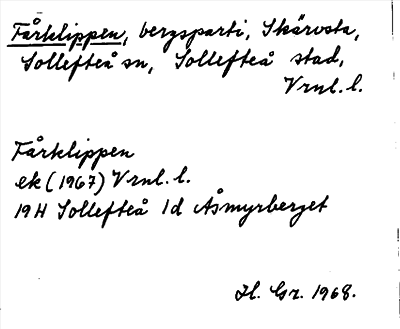 Fårklippen, bergsparti, Skärvsta,
Sollefteå sn, Sollefteå stad,
Vrnl. l.
Fårklippen
ek (1967) Vrnl. l.
19H Sollefteå 1d Åsmyrberget
H. Gr. 1968.